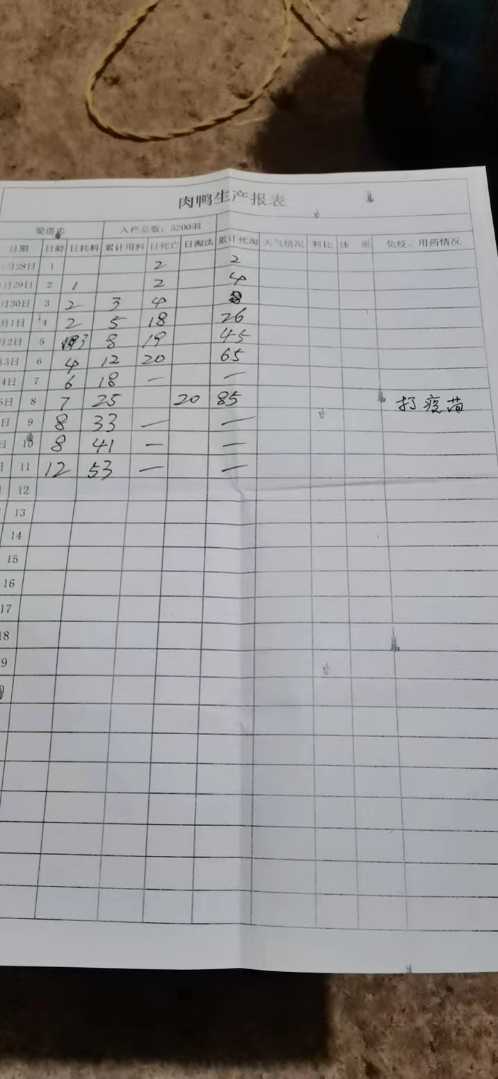 肉鸭生产报表
入栏总数：5200羽
日期 日龄 日耗料 累计用料 日死亡 日淘汰 累计死淘 天气情况 料比 体重 免疫、用药情况
月28日 1 2 2
月29日 2 1 2 4
月30日 3 2 3 4 8
月1日 4 2 5 18 26
月2日 5 3 8 19 45
月3日 6 4 12 20 65
4日 7 6 18 — —
5日 8 7 25 20 85 打疫苗
日 9 8 33 — —
日 10 8 41 — —
11 12 53 — —
12
13
14
15
16
17
18
9